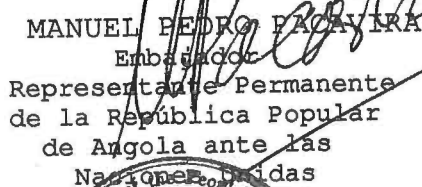 MANUEL PEDRO PACAVIRA
Embajador
Representante Permanente
de la República Popular
de Angola ante las
Naciones Unidas